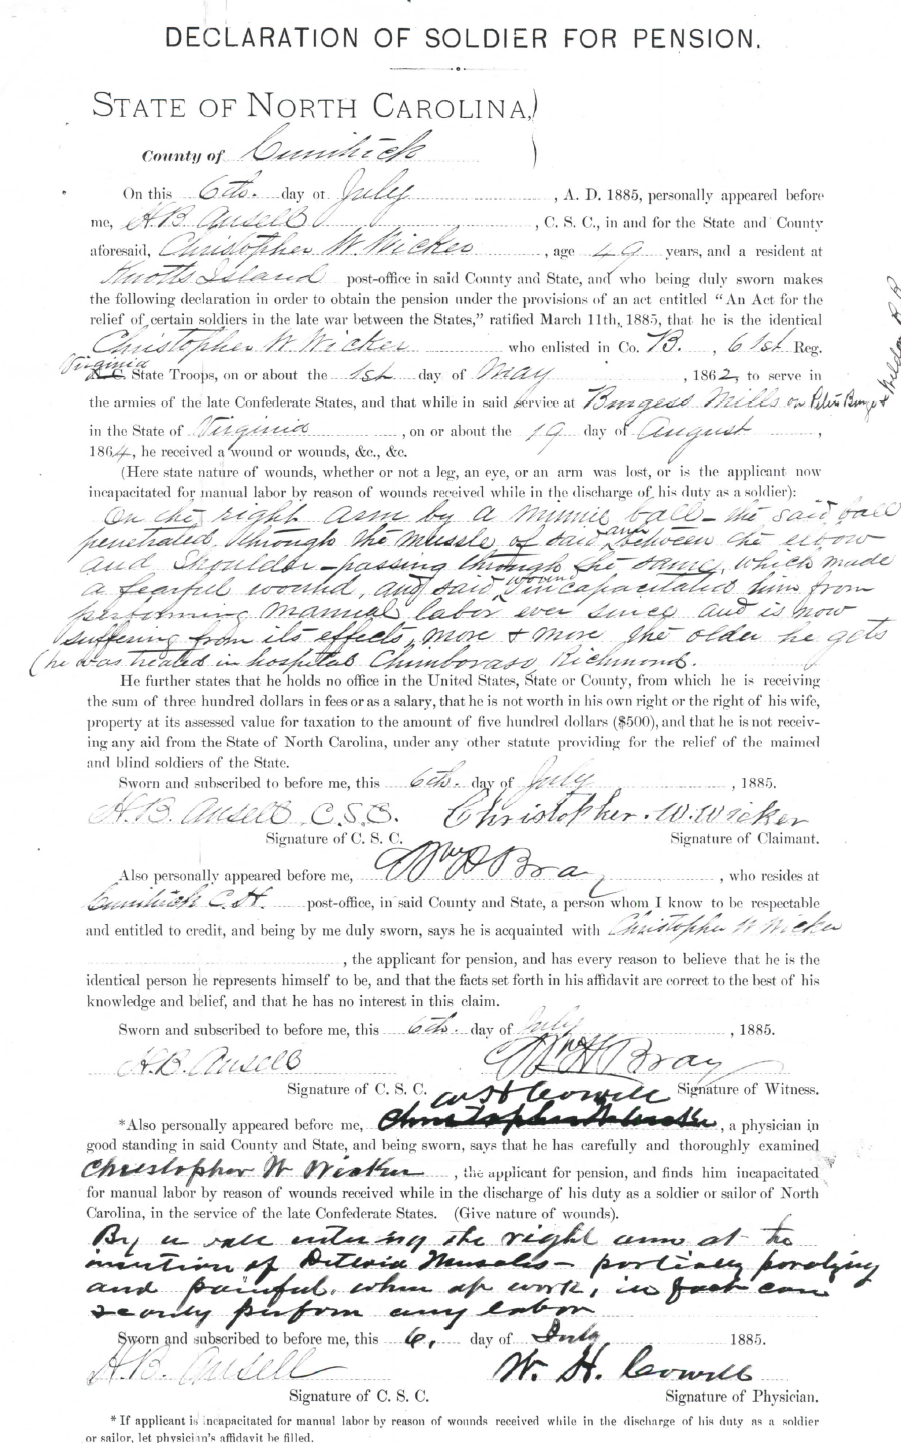 DECLARATION OF SOLDIER FOR PENSION.
STATE OF NORTH CAROLINA,)
County of Currituck )
On this 6th. day of July , A. D. 1885, personally appeared before
me, H. B. Ansell , C. S. C., in and for the State and County
aforesaid, Christopher W. Wicker , age 49 years, and a resident at
Knotts Island post-office in said County and State, and who being duly sworn makes
the following declaration in order to obtain the pension under the provisions of an act entitled “An Act for the
relief of certain soldiers in the late war between the States,” ratified March 11th, 1885, that he is the identical
Christopher W. Wicker who enlisted in Co. B. , 61st Reg.
Virginia
N. C. State Troops, on or about the 1st day of May , 1862, to serve in
the armies of the late Confederate States, and that while in said service at Burgess Mills on & Weldon R R
in the State of Virginia , on or about the 19 day of August ,
1864, he received a wound or wounds, &c., &c.
(Here state nature of wounds, whether or not a leg, an eye, or an arm was lost, or is the applicant now
incapacitated for manual labor by reason of wounds received while in the discharge of his duty as a soldier):
On the right arm by a minnie ball – the said ball
penetrated through the mussle of said arm between the elbow
and Shoulder – passing through the same, which made
a fearful wound, and said wound incapacitated him from
performing manual labor ever since and is now
suffering from its effects, more & more the older he gets
(he was treated in hospital Chimborass, Richmond.
He further states that he holds no office in the United States, State or County, from which he is receiving
the sum of three hundred dollars in fees or as a salary, that he is not worth in his own right or the right of his wife,
property at its assessed value for taxation to the amount of five hundred dollars ($500), and that he is not receiv-
ing any aid from the State of North Carolina, under any other statute providing for the relief of the maimed
and blind soldiers of the State.
Sworn and subscribed to before me, this 6th. day of July , 1885.
H. B. Ansell C.S.C. Christopher. W. Wicker
Signature of C. S. C. Signature of Claimant.
Also personally appeared before me, Wm H Bray , who resides at
Currituck C. H. post-office, in said County and State, a person whom I know to be respectable
and entitled to credit, and being by me duly sworn, says he is acquainted with Christopher W Wicker
, the applicant for pension, and has every reason to believe that he is the
identical person he represents himself to be, and that the facts set forth in his affidavit are correct to the best of his
knowledge and belief, and that he has no interest in this claim.
Sworn and subscribed to before me, this 6th. day of July , 1885.
H. B. Ansell Wm H Bray
Signature of C. S. C. Signature of Witness.
W H Cowell
*Also personally appeared before me, , a physician in
good standing in said County and State, and being sworn, says that he has carefully and thoroughly examined
Christopher W Wicker , the applicant for pension, and finds him incapacitated
for manual labor by reason of wounds received while in the discharge of his duty as a soldier or sailor of North
Carolina, in the service of the late Confederate States. (Give nature of wounds).
By a ball entering the right arm at the
of Muscles – partially
and painful when at work, in fact can
perform any labor
Sworn and subscribed to before me, this 6, day of July 1885.
H. B. Ansell W. H. Cowell
Signature of C. S. C. Signature of Physician.
* If applicant is incapacitated for manual labor by reason of wounds received while in the discharge of his duty as a soldier
or sailor, let physician's affidavit be filled.